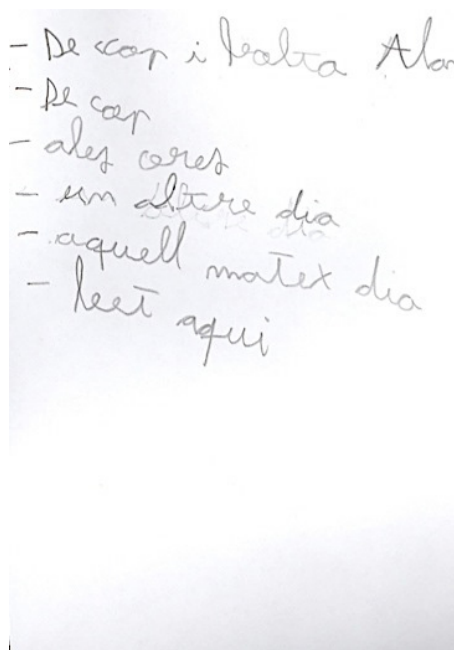 - De cop i bolta Alar
- De cop
- ales ores
- un altre dia
- aquell matex dia
- heet aqui